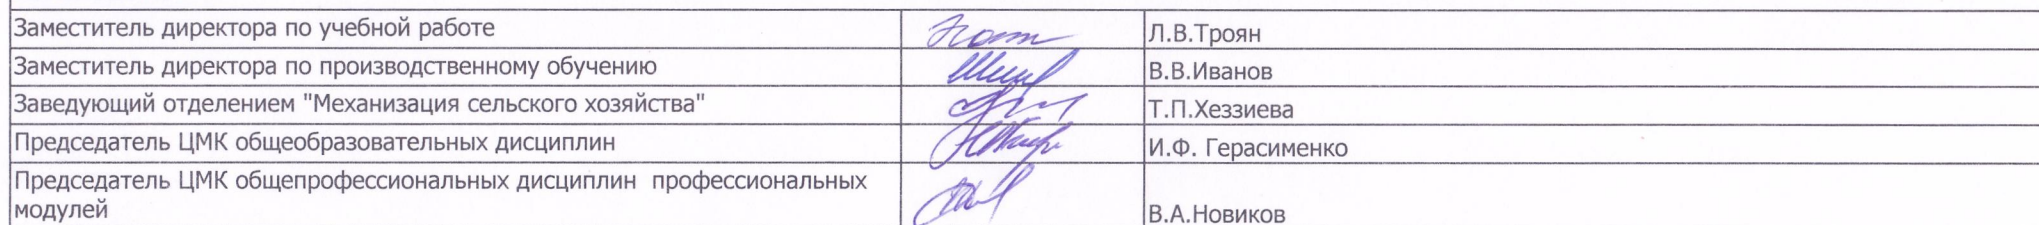 Заместитель директора по учебной работе Л.В.Троян
Заместитель директора по производственному обучению В.В.Иванов
Заведующий отделением "Механизация сельского хозяйства" Т.П.Хеззиева
Председатель ЦМК общеобразовательных дисциплин И.Ф. Герасименко
Председатель ЦМК общепрофессиональных дисциплин профессиональных
модулей В.А.Новиков